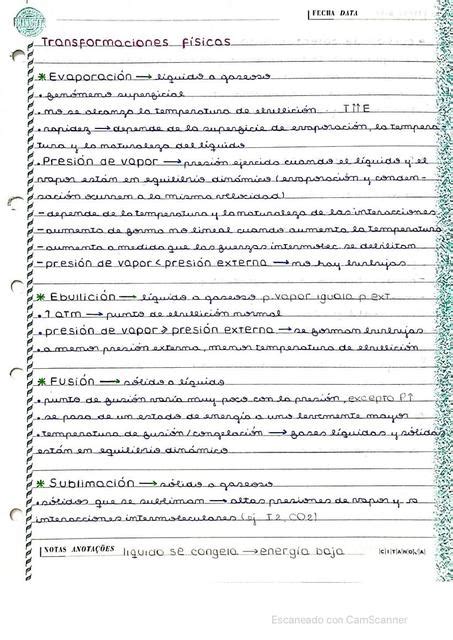 FECHA DATA
Transformaciones físicas
* Evaporación → líquido a gaseoso
• fenómeno superficial
• no se alcanza la temperatura de ebullición T↑↑E
• rapidez → depende de la superficie de evaporación, la tempera-
tura y la naturaleza del líquido
• Presión de vapor → presión ejercida cuando el líquido y el
vapor están en equilibrio dinámico (evaporación y conden-
sación ocurren a la misma velocidad)
- depende de la temperatura y la naturaleza de las interacciones
- aumenta de forma no lineal cuando aumenta la temperatura
- aumenta a medida que las fuerzas intermolec. se debilitan
- presión de vapor < presión externa → no hay burbujas
* Ebullición → líquido a gaseoso p. vapor iguala p ext
• 1 atm → punto de ebullición normal
• presión de vapor > presión externa → se forman burbujas
• a menor presión externa, menor temperatura de ebullición
* Fusión → sólido a líquido
• punto de fusión varía muy poco con la presión, excepto P↑
• se pasa de un estado de energía a uno levemente mayor
• temperatura de fusión/congelación → fases líquidas y sólidas
están en equilibrio dinámico
* Sublimación → sólido a gaseoso
• sólidos que se subliman → altas presiones de vapor y
interacciones intermoleculares (ej I2, CO2)
NOTAS ANOTAÇÕES líquido se congela → energía baja
CITANOVA
Escaneado con CamScanner